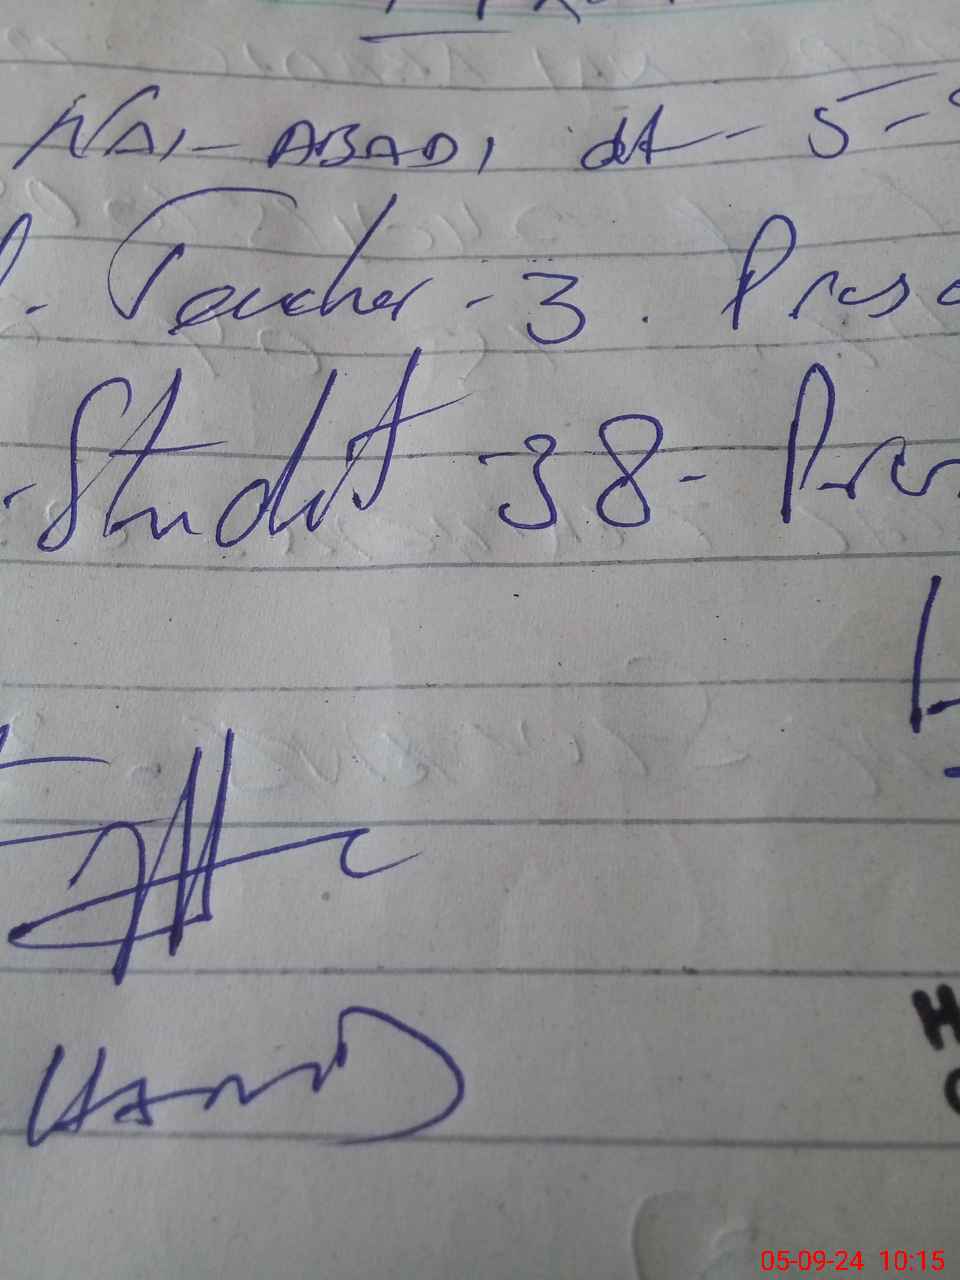 NAI-ABADI dt - 5-
Teacher - 3. Prese
- Studet - 38 - Pres
HAMID
H
05-09-24 10:15